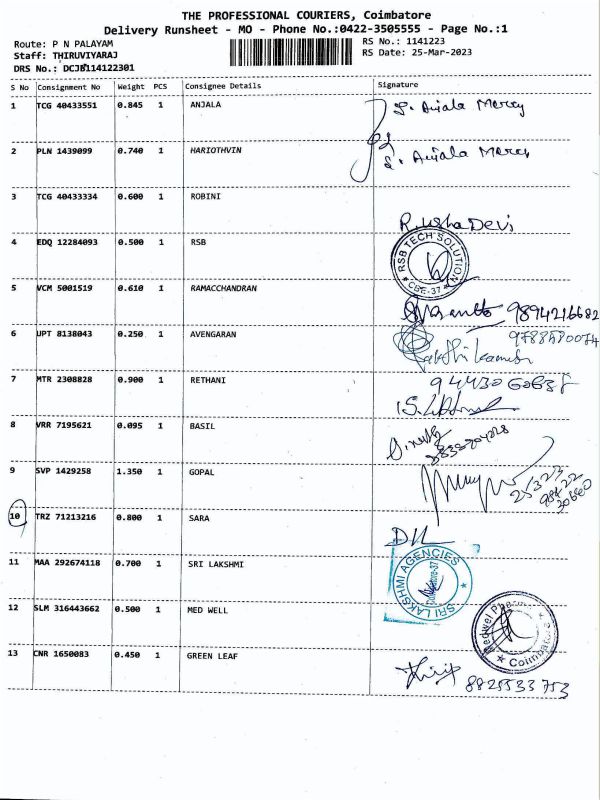 THE PROFESSIONAL COURIERS, Coimbatore
Delivery Runsheet - MO - Phone No.:0422-3505555 - Page No.:1
Route: P N PALAYAM
RS No.: 1141223
Staff: THIRUVIYARAJ
RS Date: 25-Mar-2023
DRS No.: DCJB114122301
S No Consignment No Weight PCS Consignee Details Signature
1 TCG 40433551 0.845 1 ANJALA S. Anjala Mercy
2 PLN 1439099 0.740 1 HARIOTHVIN S. Anjala Mercy
3 TCG 40433334 0.600 1 ROBINI R. Usha Devi
4 EDQ 12284093 0.500 1 RSB RSB TECH SOLUTION CBE-37
5 VCM 5001519 0.610 1 RAMACCHANDRAN 9894216682
6 UPT 8138043 0.250 1 AVENGARAN
7 MTR 2308828 0.900 1 RETHANI
8 VRR 7195621 0.095 1 BASIL
9 SVP 1429258 1.350 1 GOPAL 25/3/23
10 TRZ 71213216 0.800 1 SARA
11 MAA 292674118 0.700 1 SRI LAKSHMI SRI LAKSHMI AGENCIES
12 SLM 316443662 0.500 1 MED WELL Coimbatore
13 CNR 1650083 0.450 1 GREEN LEAF 8825533753